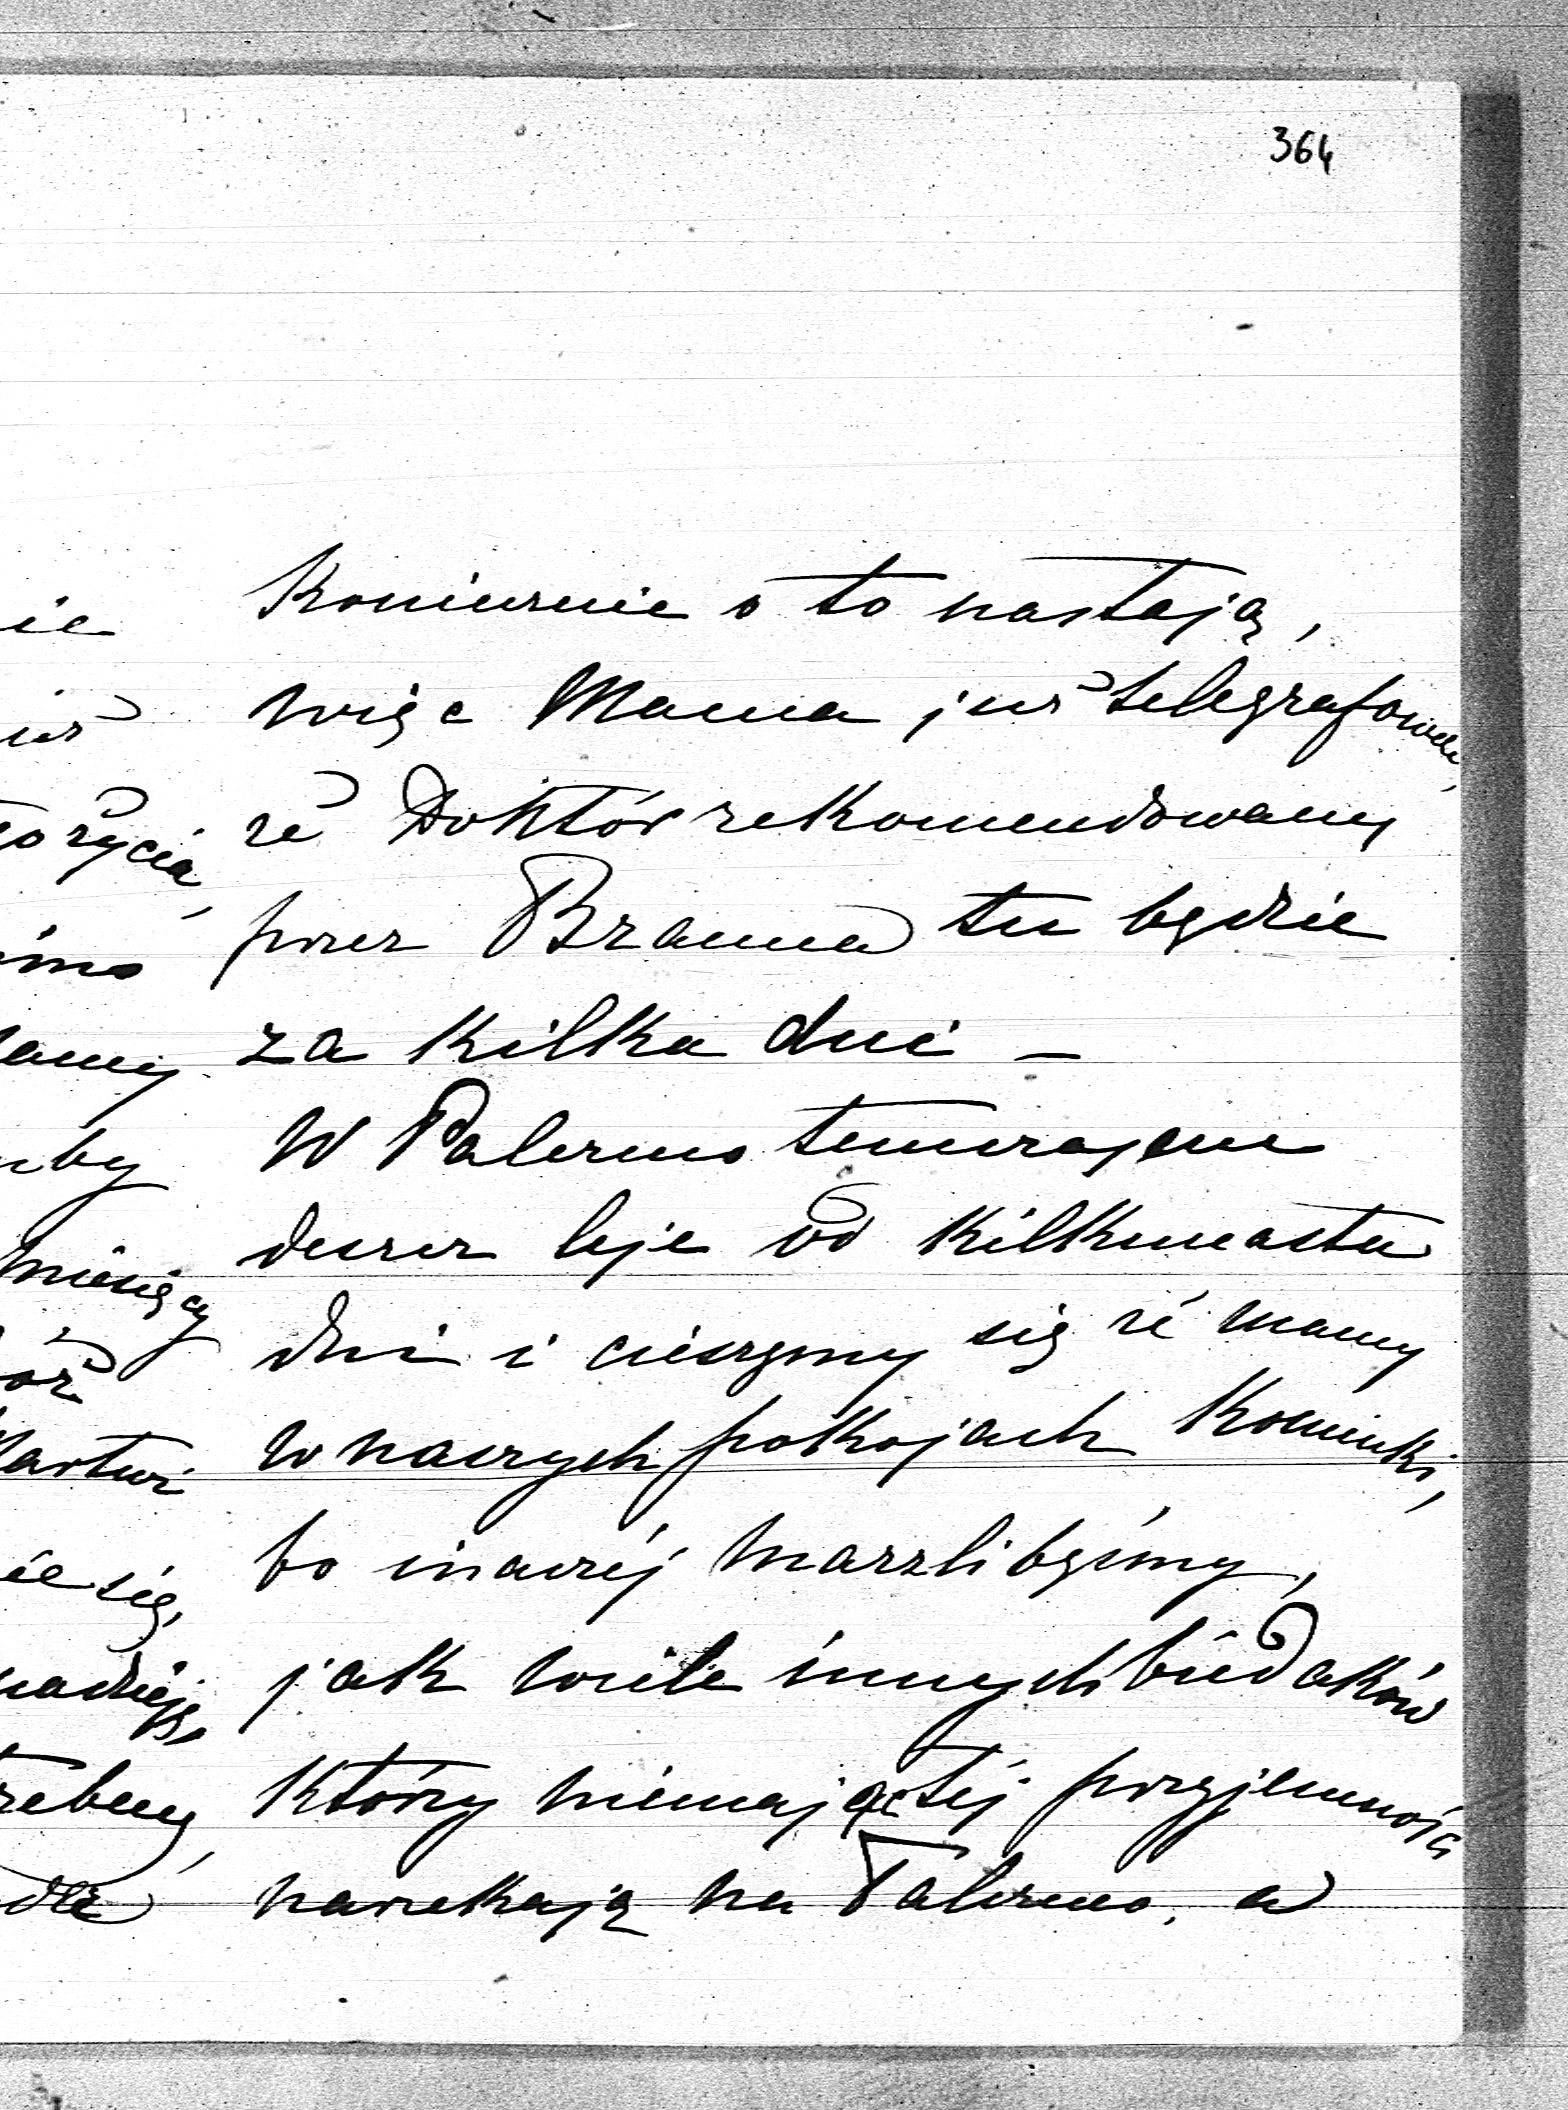 364
Koniecznie o to nastają,
więc Mama już telegrafowała,
że Doktór rekomendowany
przez Brauna tu będzie
za kilka dni –
W Palermo
deszcz leje od kilkunastu
dni i cieszymy się że mamy
w naszych pokojach Kominki,
bo inaczéj marzlibyśmy,
jak wiele innych biédaków
którzy niemając téj przyjemności
narzekają na Palermo, a
ie
już
to życia,
imo
amy
uby
miesięcy
oż
Martwi
ie się,
nadzieję,
rzebuy,
dle